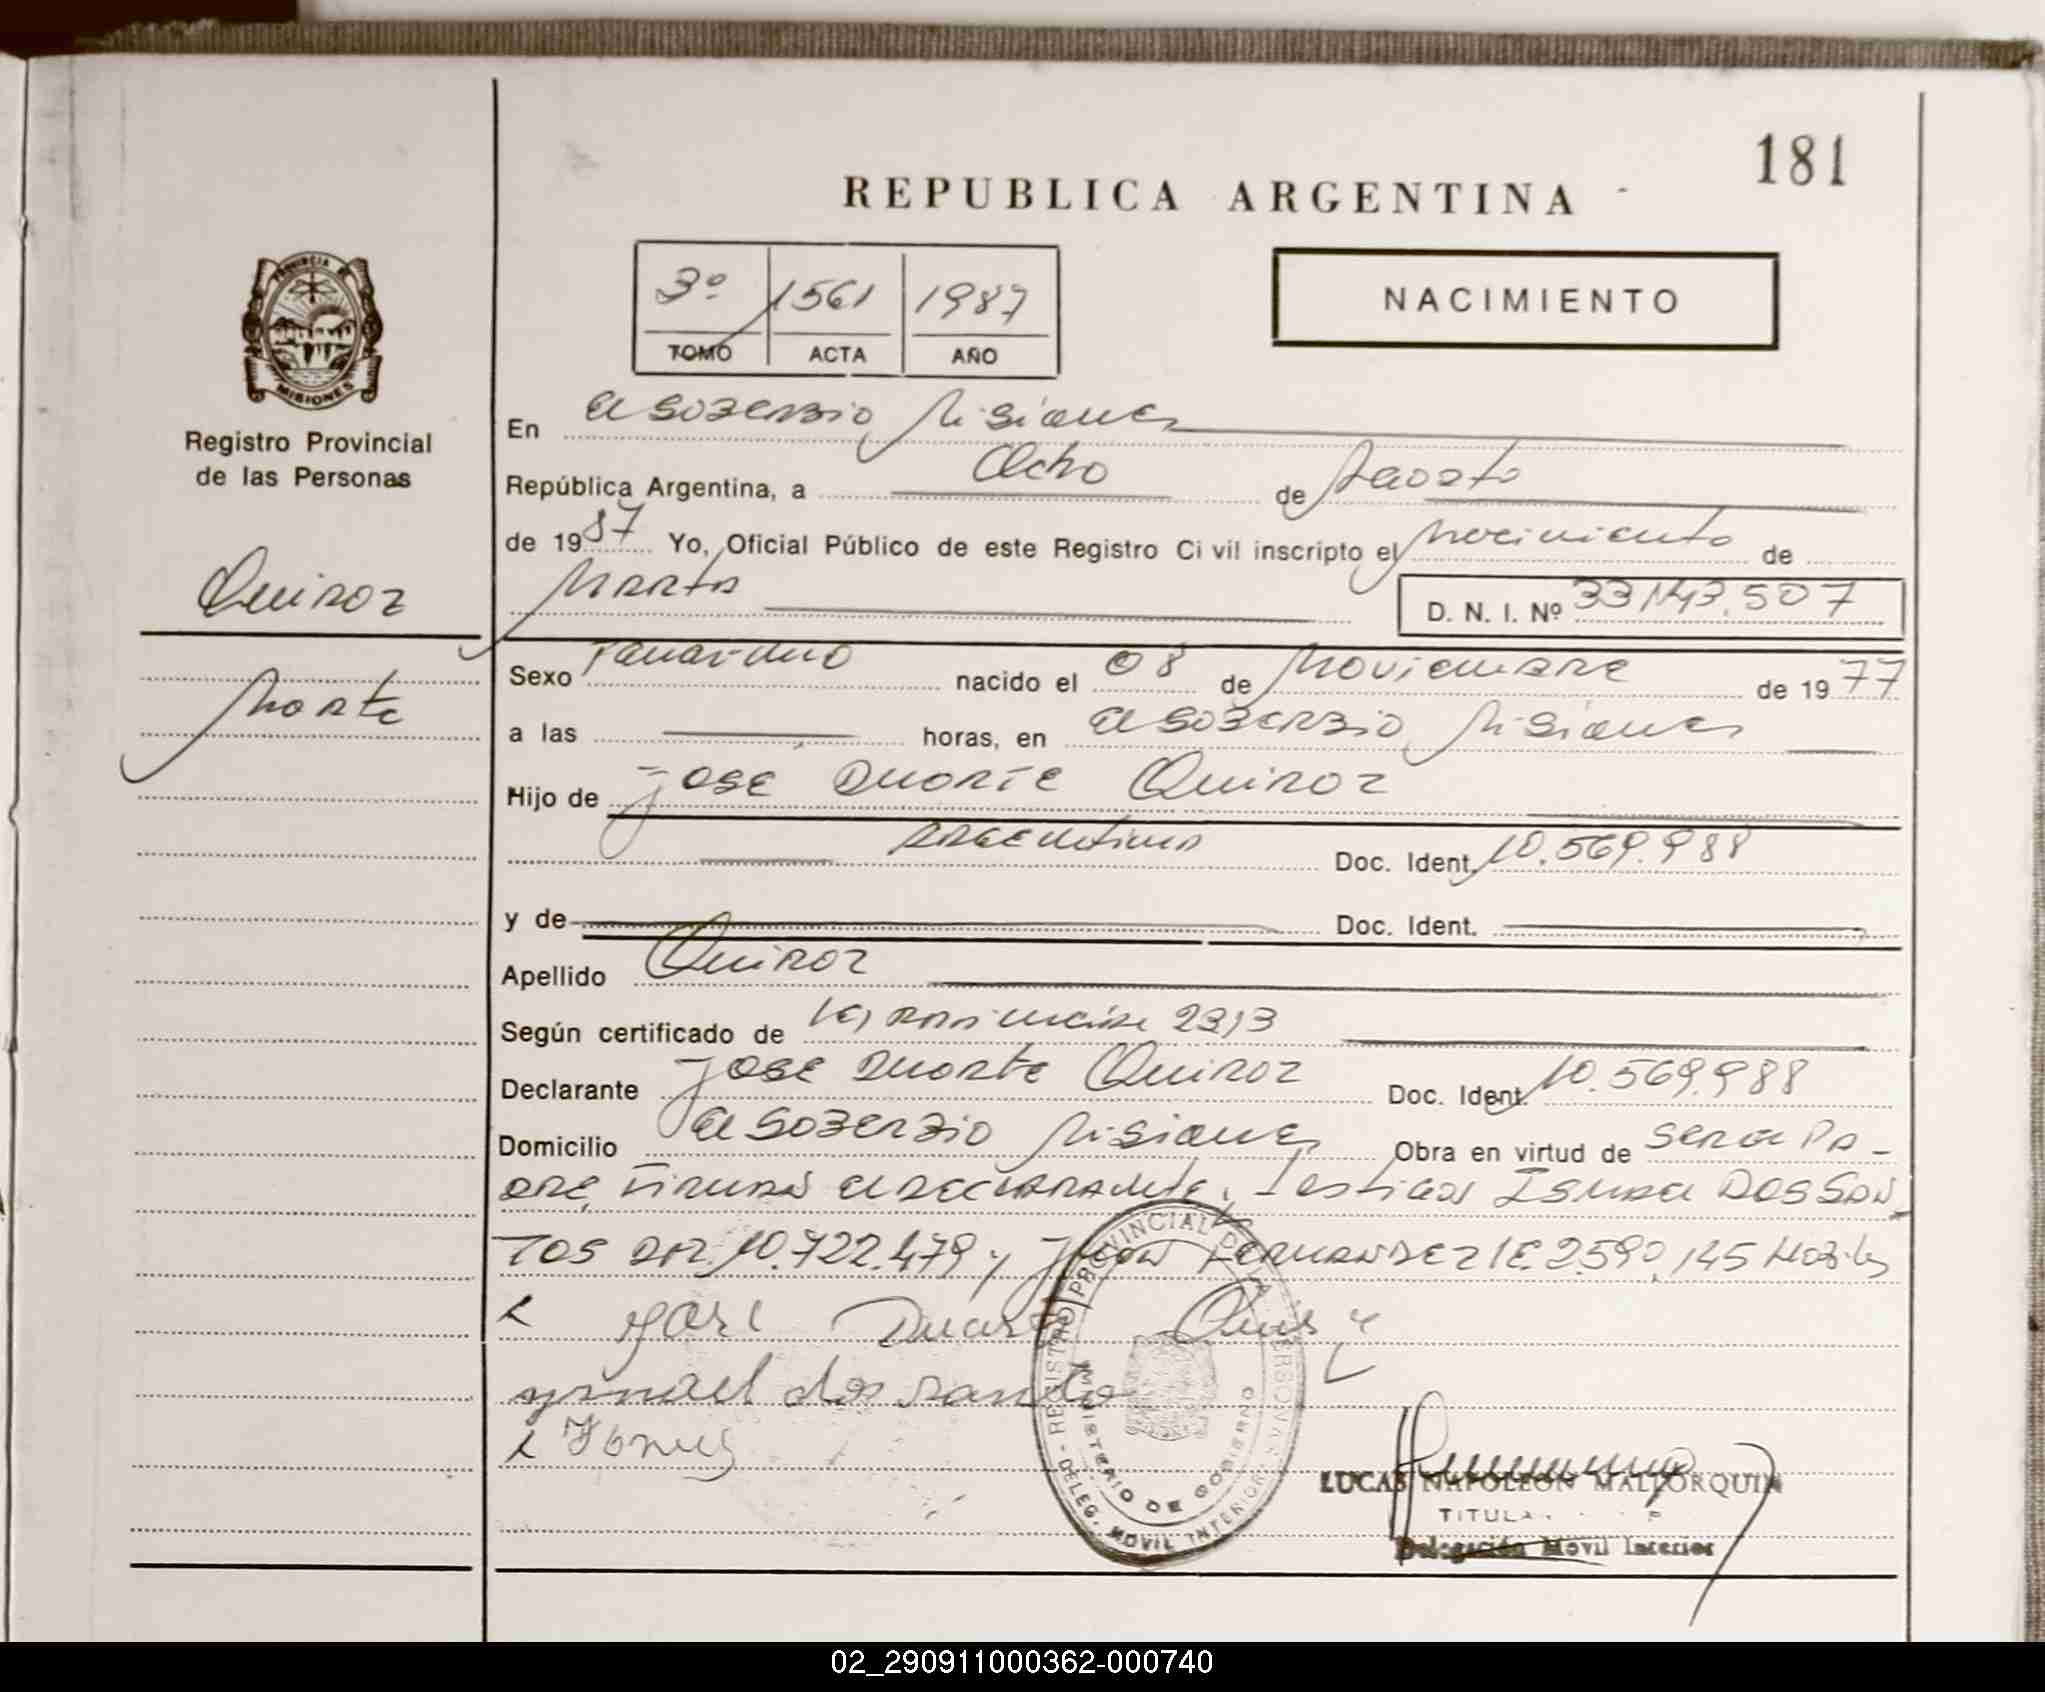 181
REPUBLICA ARGENTINA
3º 1561 1987
TOMO ACTA AÑO
NACIMIENTO
PROVINCIA DE MISIONES
Registro Provincial
de las Personas
Quiroz
Marta
En el Soberbio Misiones
República Argentina, a Ocho de Agosto
de 1987 Yo, Oficial Público de este Registro Civil inscripto el nacimiento de
Marta D. N. I. Nº 33.143.507
Sexo Femenino nacido el 08 de Noviembre de 1977
a las horas, en el Soberbio Misiones
Hijo de José Duarte Quiroz
Argentino Doc. Ident. 10.569.988
y de Doc. Ident.
Apellido Quiroz
Según certificado de 23/3
Declarante José Duarte Quiroz Doc. Ident. 10.569.988
Domicilio el Soberbio Misiones Obra en virtud de ser el Pa-
dre, Firman el declarante, Testigos Ismael Dos San
tos 10.722.479 y Juan Fernandez 2.590.145
José Duarte Quiroz
ysmael dos santo
REGISTRO PROVINCIAL DE LAS PERSONAS
MINISTERIO DE GOBIERNO
DELEG. MOVIL INTERIOR
LUCAS NAPOLEON MALLORQUIN
TITULAR
Delegación Móvil Interior
02_290911000362-000740